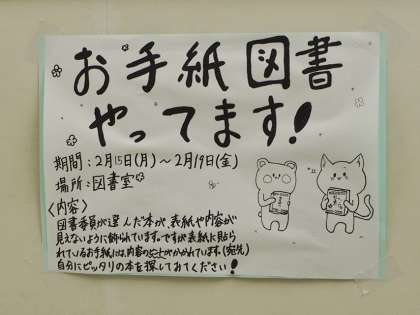 お手紙図書
やってます!
期間:2月15日(月)~2月19日(金)
場所:図書室
<内容>
図書委員が選んだ本が、表紙や内容が
見えないように飾られています。ですが表紙に貼ら
れているお手紙には、内容のヒントがかかれています。(宛先)
自分にピッタリの本を探してみてください!